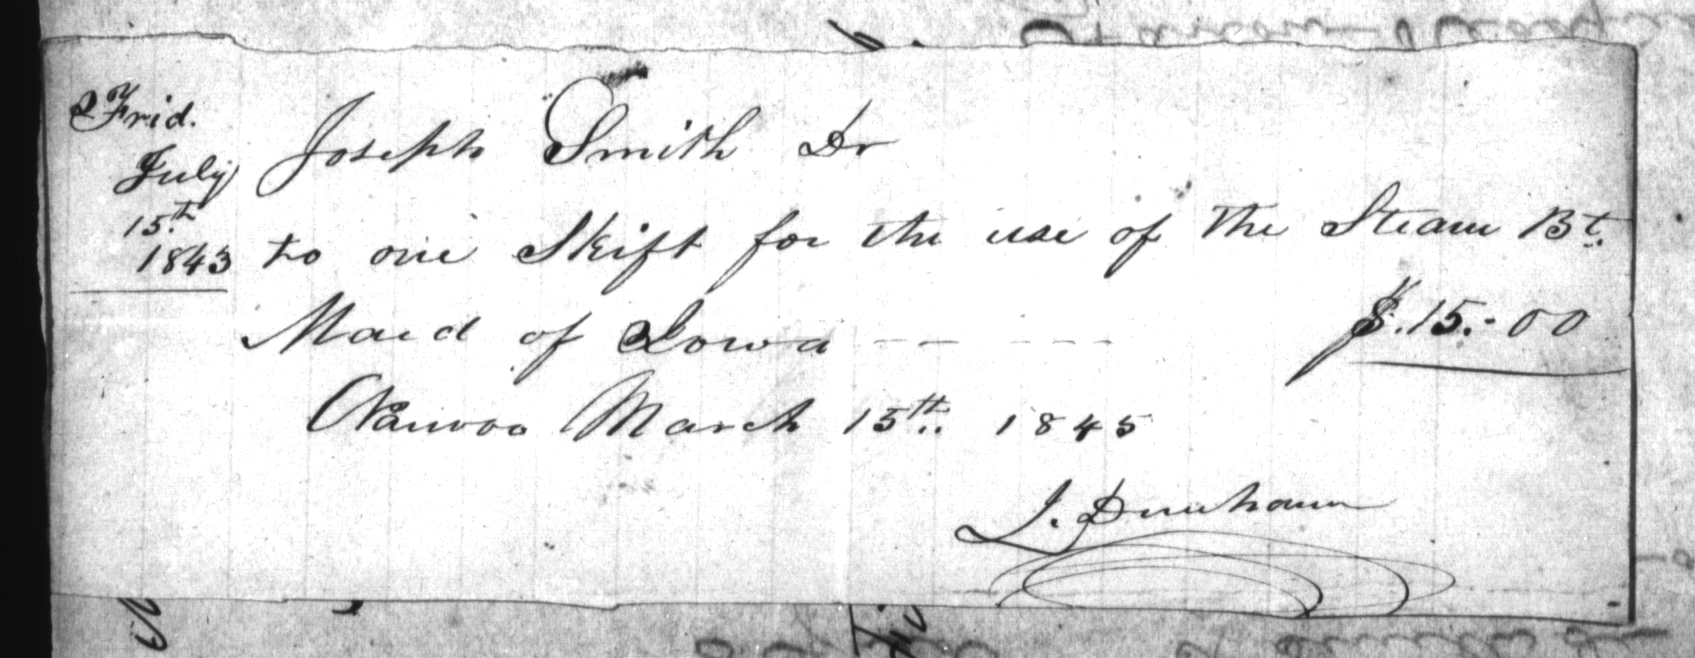 Frid.
July
15.th
1843
Joseph Smith Dr
to one Skift for the use of the Steam Bt.
Maid of Iowa -- -- $.15.-00
Nauvoo March 15th. 1845
J. Dunham